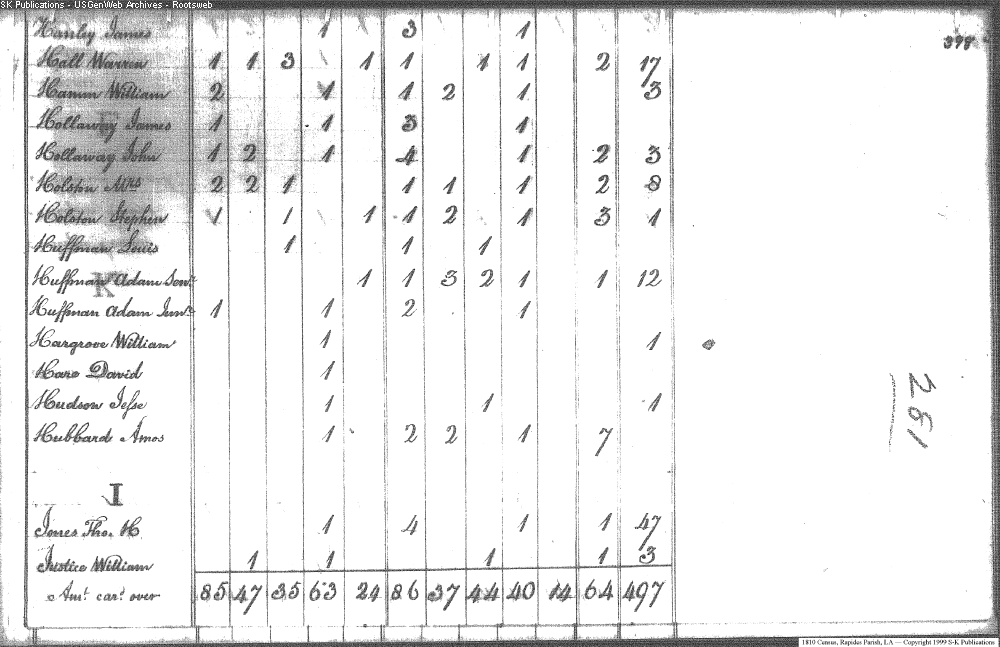 SK Publications - USGenWeb Archives - Rootsweb
398
Hanley James 1 3 1
Hall Warren 1 1 3 1 1 1 1 2 17
Hamm William 2 1 1 2 1 3
Hollaway James 1 1 3 1
Hollaway John 1 2 1 4 1 2 3
Holston Mrs 2 2 1 1 1 1 2 8
Holston Stephen 1 1 1 1 2 1 3 1
Huffman Louis 1 1 1
K
Huffman Adam Senr 1 1 3 2 1 1 12
Huffman Adam Junr 1 1 2 1
Hargrove William 1 1
Hare David 1
Hudson Jesse 1 1 1
Hubbard Amos 1 2 2 1 7
281
I
Jones Tho. H 1 4 1 1 47
Justice William 1 1 1 1 3
Amt. card. over 85 47 35 63 24 86 37 44 40 14 64 497
1810 Census, Rapides Parish, LA — Copyright 1999 S-K Publications